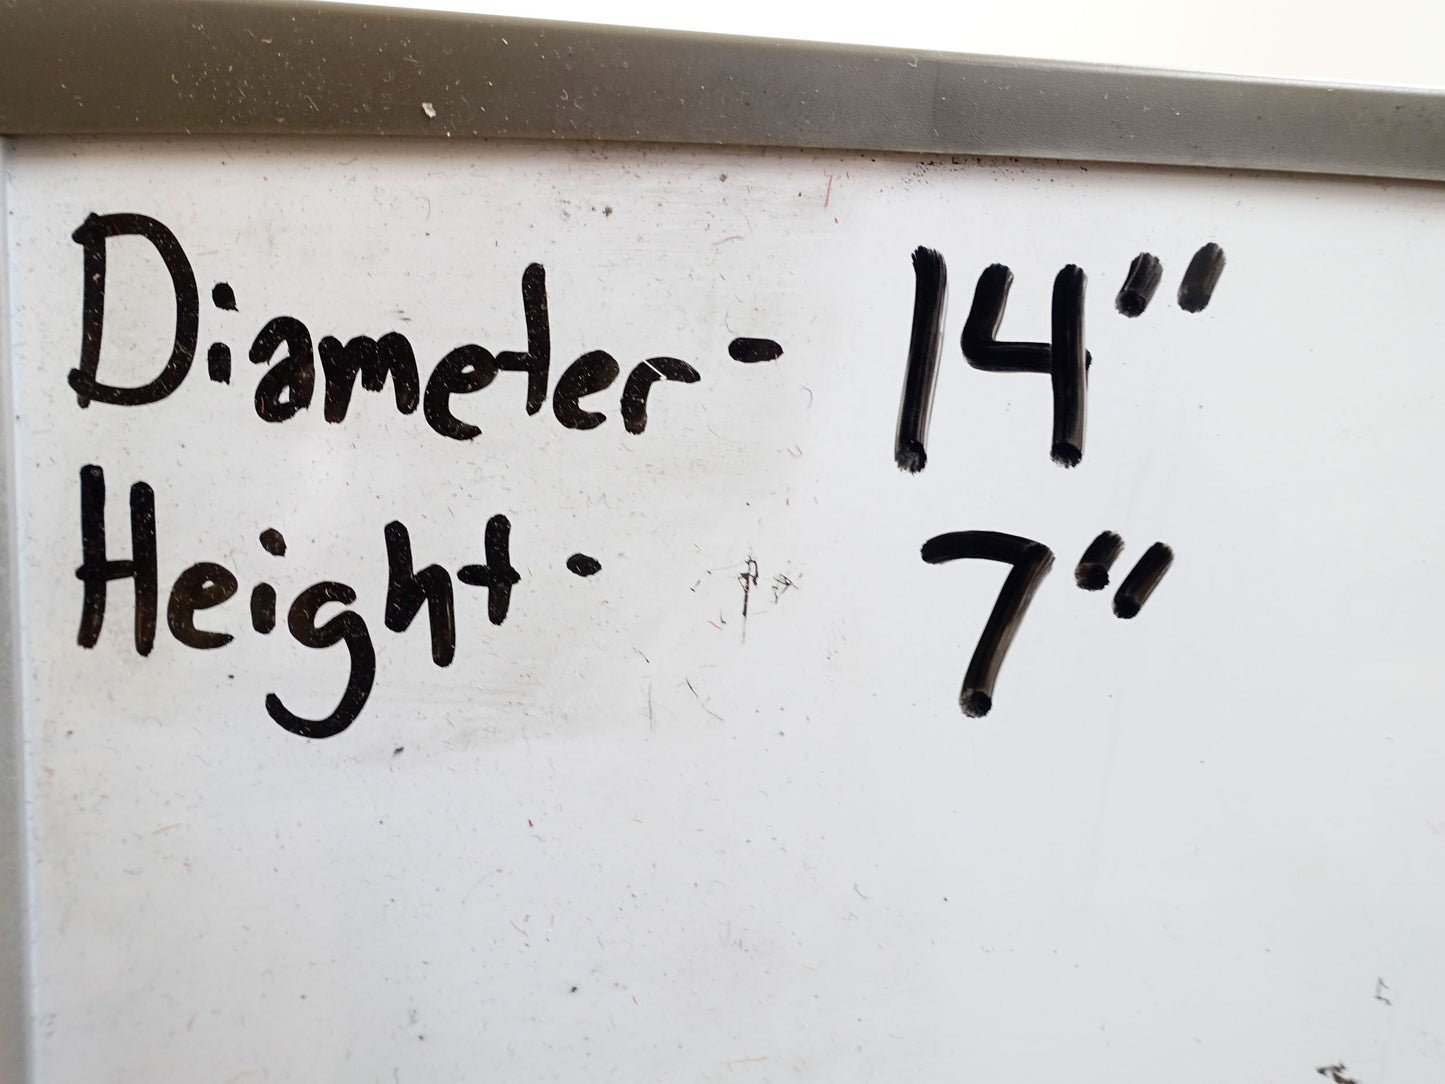 Diameter - 14"
Height - 7"